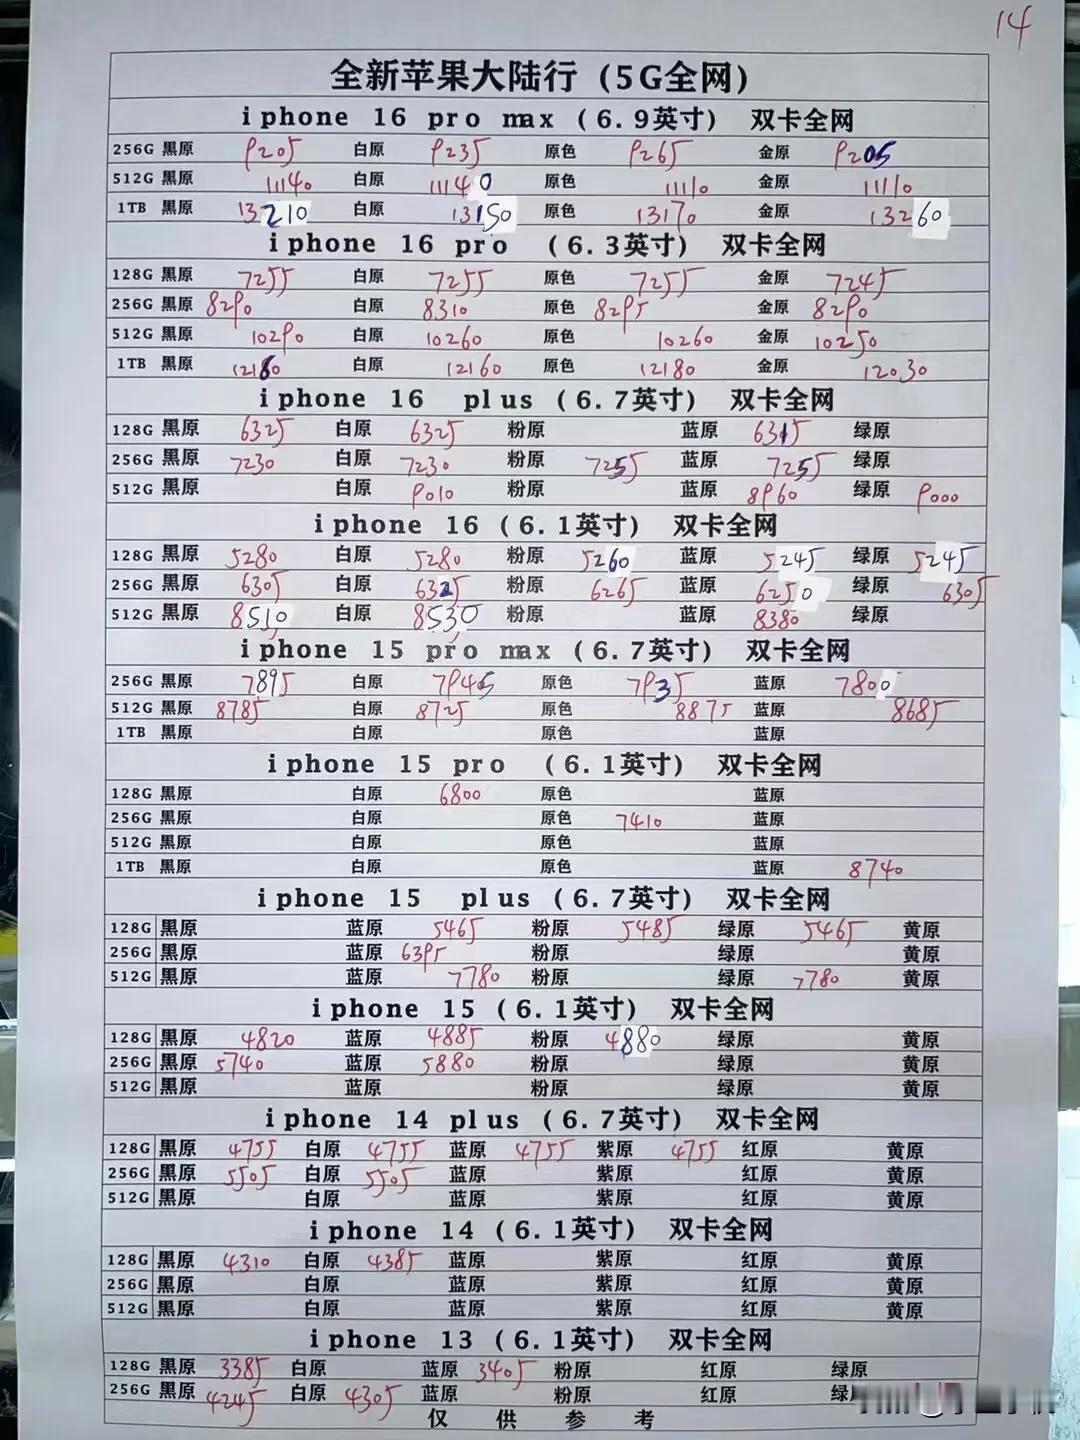 14
全新苹果大陆行 (5G全网)
iphone 16 pro max (6.9英寸) 双卡全网
256G 黑原 9205 白原 9235 原色 9265 金原 9205
512G 黑原 11140 白原 11140 原色 11110 金原 11110
1TB 黑原 13210 白原 13150 原色 13170 金原 13260
iphone 16 pro (6.3英寸) 双卡全网
128G 黑原 7255 白原 7255 原色 7255 金原 7245
256G 黑原 8290 白原 8310 原色 8295 金原 8290
512G 黑原 10290 白原 10260 原色 10260 金原 10250
1TB 黑原 12180 白原 12160 原色 12180 金原 12030
iphone 16 plus (6.7英寸) 双卡全网
128G 黑原 6325 白原 6325 粉原 蓝原 6315 绿原
256G 黑原 7230 白原 7230 粉原 7255 蓝原 7255 绿原
512G 黑原 白原 9010 粉原 蓝原 8960 绿原 9000
iphone 16 (6.1英寸) 双卡全网
128G 黑原 5280 白原 5280 粉原 5260 蓝原 5245 绿原 5245
256G 黑原 6305 白原 6325 粉原 6265 蓝原 6250 绿原 6305
512G 黑原 8510 白原 8530 粉原 蓝原 8380 绿原
iphone 15 pro max (6.7英寸) 双卡全网
256G 黑原 7895 白原 7945 原色 7935 蓝原 7800
512G 黑原 8785 白原 8725 原色 8875 蓝原 8685
1TB 黑原 白原 原色 蓝原
iphone 15 pro (6.1英寸) 双卡全网
128G 黑原 白原 6800 原色 蓝原
256G 黑原 白原 原色 7410 蓝原
512G 黑原 白原 原色 蓝原
1TB 黑原 白原 原色 蓝原 8740
iphone 15 plus (6.7英寸) 双卡全网
128G 黑原 蓝原 5465 粉原 5485 绿原 5465 黄原
256G 黑原 蓝原 6395 粉原 绿原 黄原
512G 黑原 蓝原 7780 粉原 绿原 7780 黄原
iphone 15 (6.1英寸) 双卡全网
128G 黑原 4820 蓝原 4885 粉原 4880 绿原 黄原
256G 黑原 5740 蓝原 5880 粉原 绿原 黄原
512G 黑原 蓝原 粉原 绿原 黄原
iphone 14 plus (6.7英寸) 双卡全网
128G 黑原 4755 白原 4755 蓝原 4755 紫原 4755 红原 黄原
256G 黑原 5505 白原 5505 蓝原 紫原 红原 黄原
512G 黑原 白原 蓝原 紫原 红原 黄原
iphone 14 (6.1英寸) 双卡全网
128G 黑原 4310 白原 4385 蓝原 紫原 红原 黄原
256G 黑原 白原 蓝原 紫原 红原 黄原
512G 黑原 白原 蓝原 紫原 红原 黄原
iphone 13 (6.1英寸) 双卡全网
128G 黑原 3385 白原 蓝原 3405 粉原 红原 绿原
256G 黑原 4245 白原 4305 蓝原 粉原 红原
仅供参考